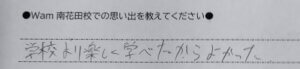 ●Wam 南花田校での思い出を教えてください●
学校より楽しく学べたからよかった